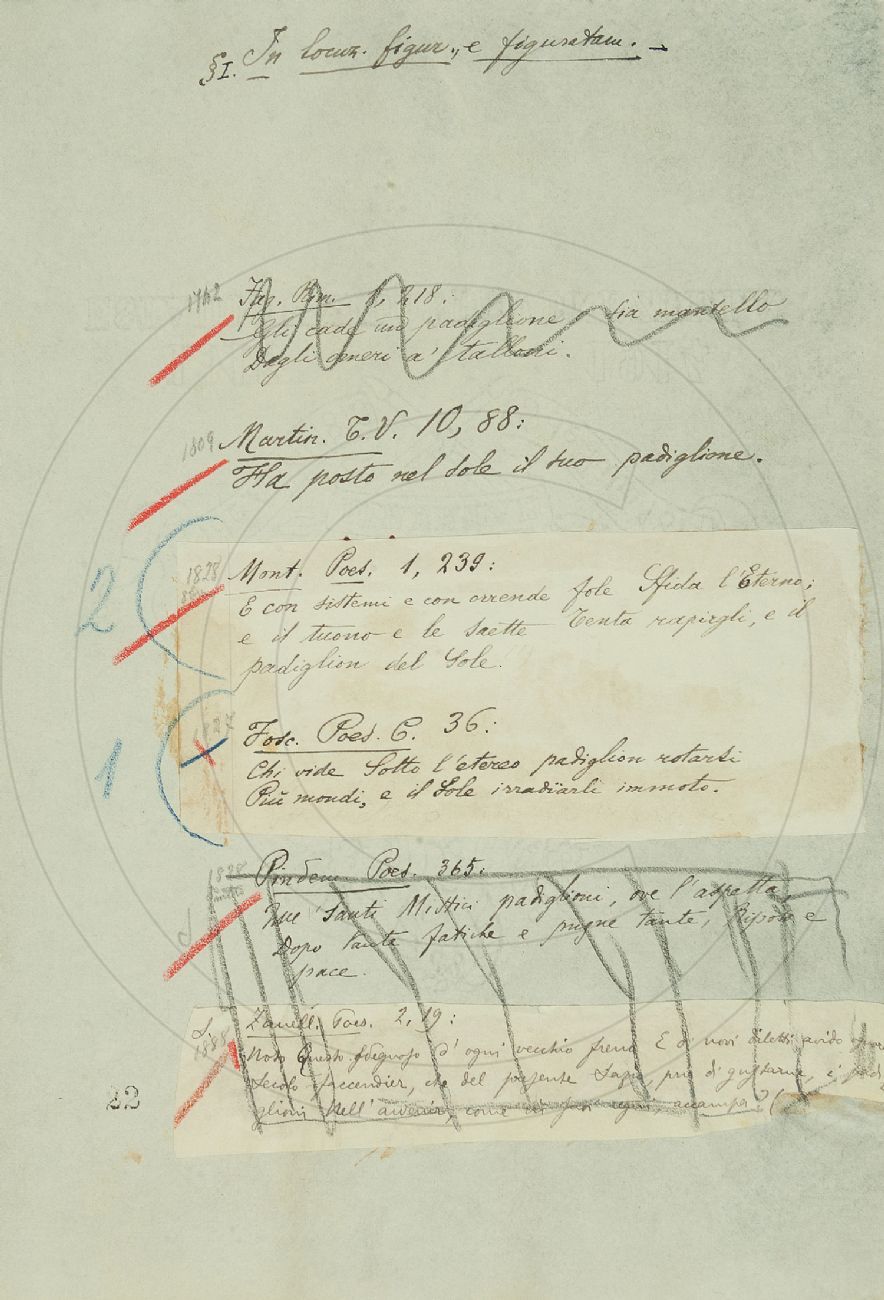 §I. In locuz. figur., e figuratam. –
1742
Fag. Rim. 1, 218:
Gli cade un padiglione sia mantello
Dagli omeri a' talloni.
1809
Martin. T. V. 10, 88:
Ha posto nel sole il suo padiglione.
2
1828
Mont. Poes. 1, 239:
E con sistemi e con orrende fole Sfida l'Eterno;
e il tuono e le saette Tenta rapirgli, e il
padiglion del Sole.
1
1827
Fosc. Poes. C. 36:
Chi vide Sotto l'etereo padiglion rotarsi
Più mondi, e il Sole irradïarli immoto.
1828
Pindem. Poes. 365:
Ne' Santi Mistici padiglioni, ove l'aspetta,
Dopo tante fatiche e pugne tante, Riposo e
pace.
1888
Zanell. Poes. 2, 19:
Noto Questo sdegnoso d'ogni vecchio freno E di novi diletti avido
Secolo faccendier, che del presente Sazio, pria di gustarne, i padi-
glioni Nell'avvenir, come in suo regno, accampa? (
22